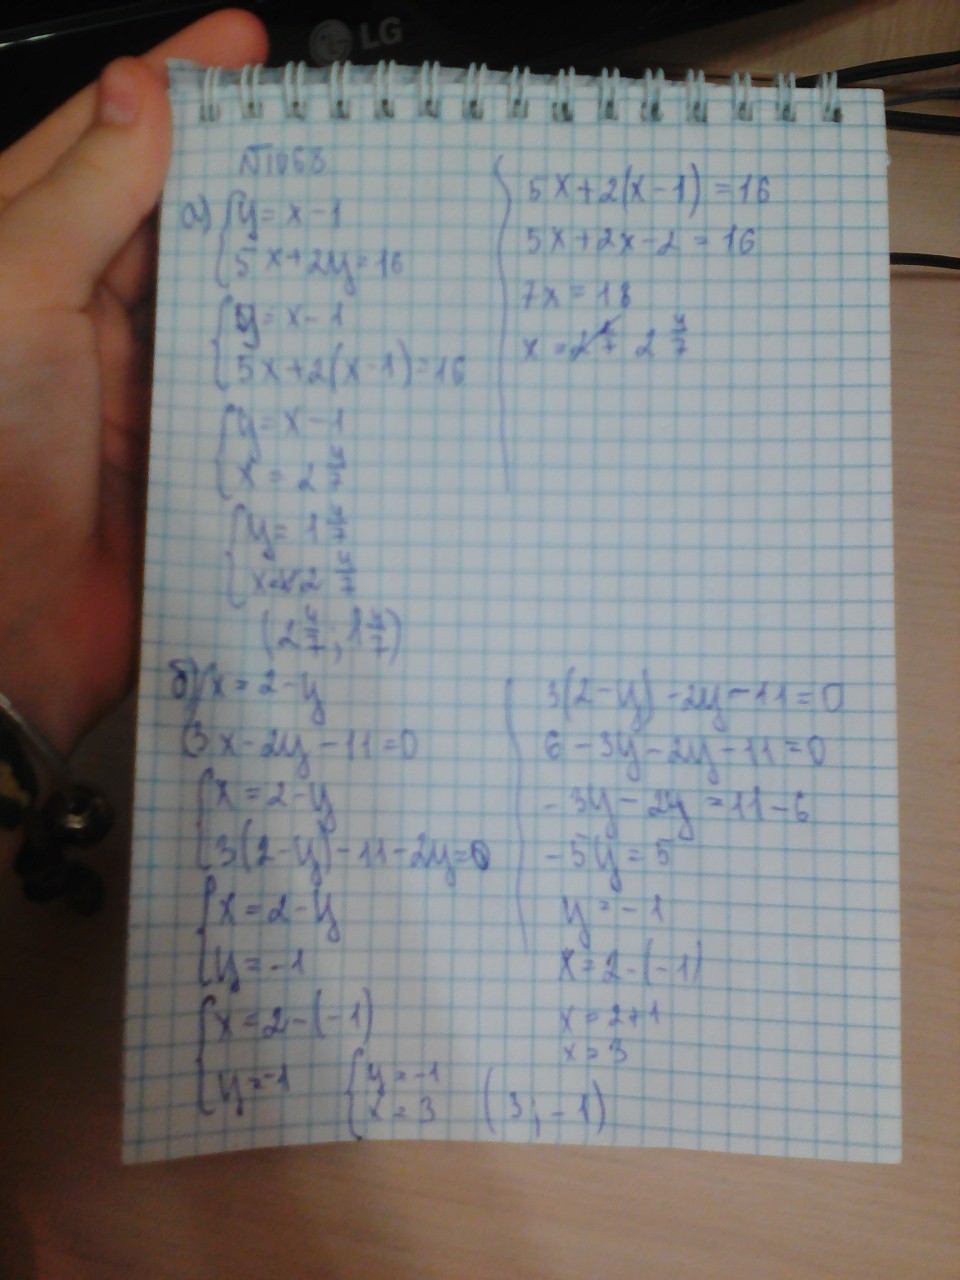 LG
№1068
а) { y = x - 1
5x + 2y = 16
{ y = x - 1
5x + 2(x - 1) = 16
{ y = x - 1
x = 2 4/7
{ y = 1 4/7
x = 2 4/7
(2 4/7; 1 4/7)
5x + 2(x - 1) = 16
5x + 2x - 2 = 16
7x = 18
x = 2 4/7
б) { x = 2 - y
3x - 2y - 11 = 0
{ x = 2 - y
3(2 - y) - 11 - 2y = 0
{ x = 2 - y
y = -1
{ x = 2 - (-1)
y = -1
{ y = -1
x = 3
(3; -1)
3(2 - y) - 2y - 11 = 0
6 - 3y - 2y - 11 = 0
- 3y - 2y = 11 - 6
- 5y = 5
y = -1
x = 2 - (-1)
x = 2 + 1
x = 3